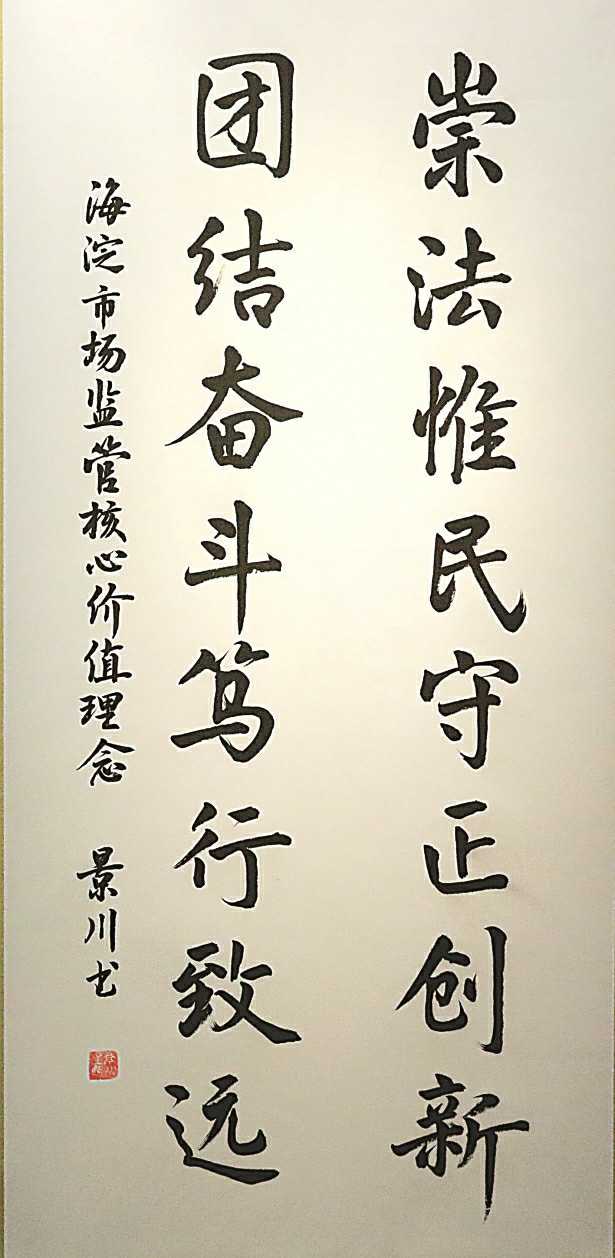 崇法惟民守正创新
团结奋斗笃行致远
海淀市场监管核心价值理念 景川书